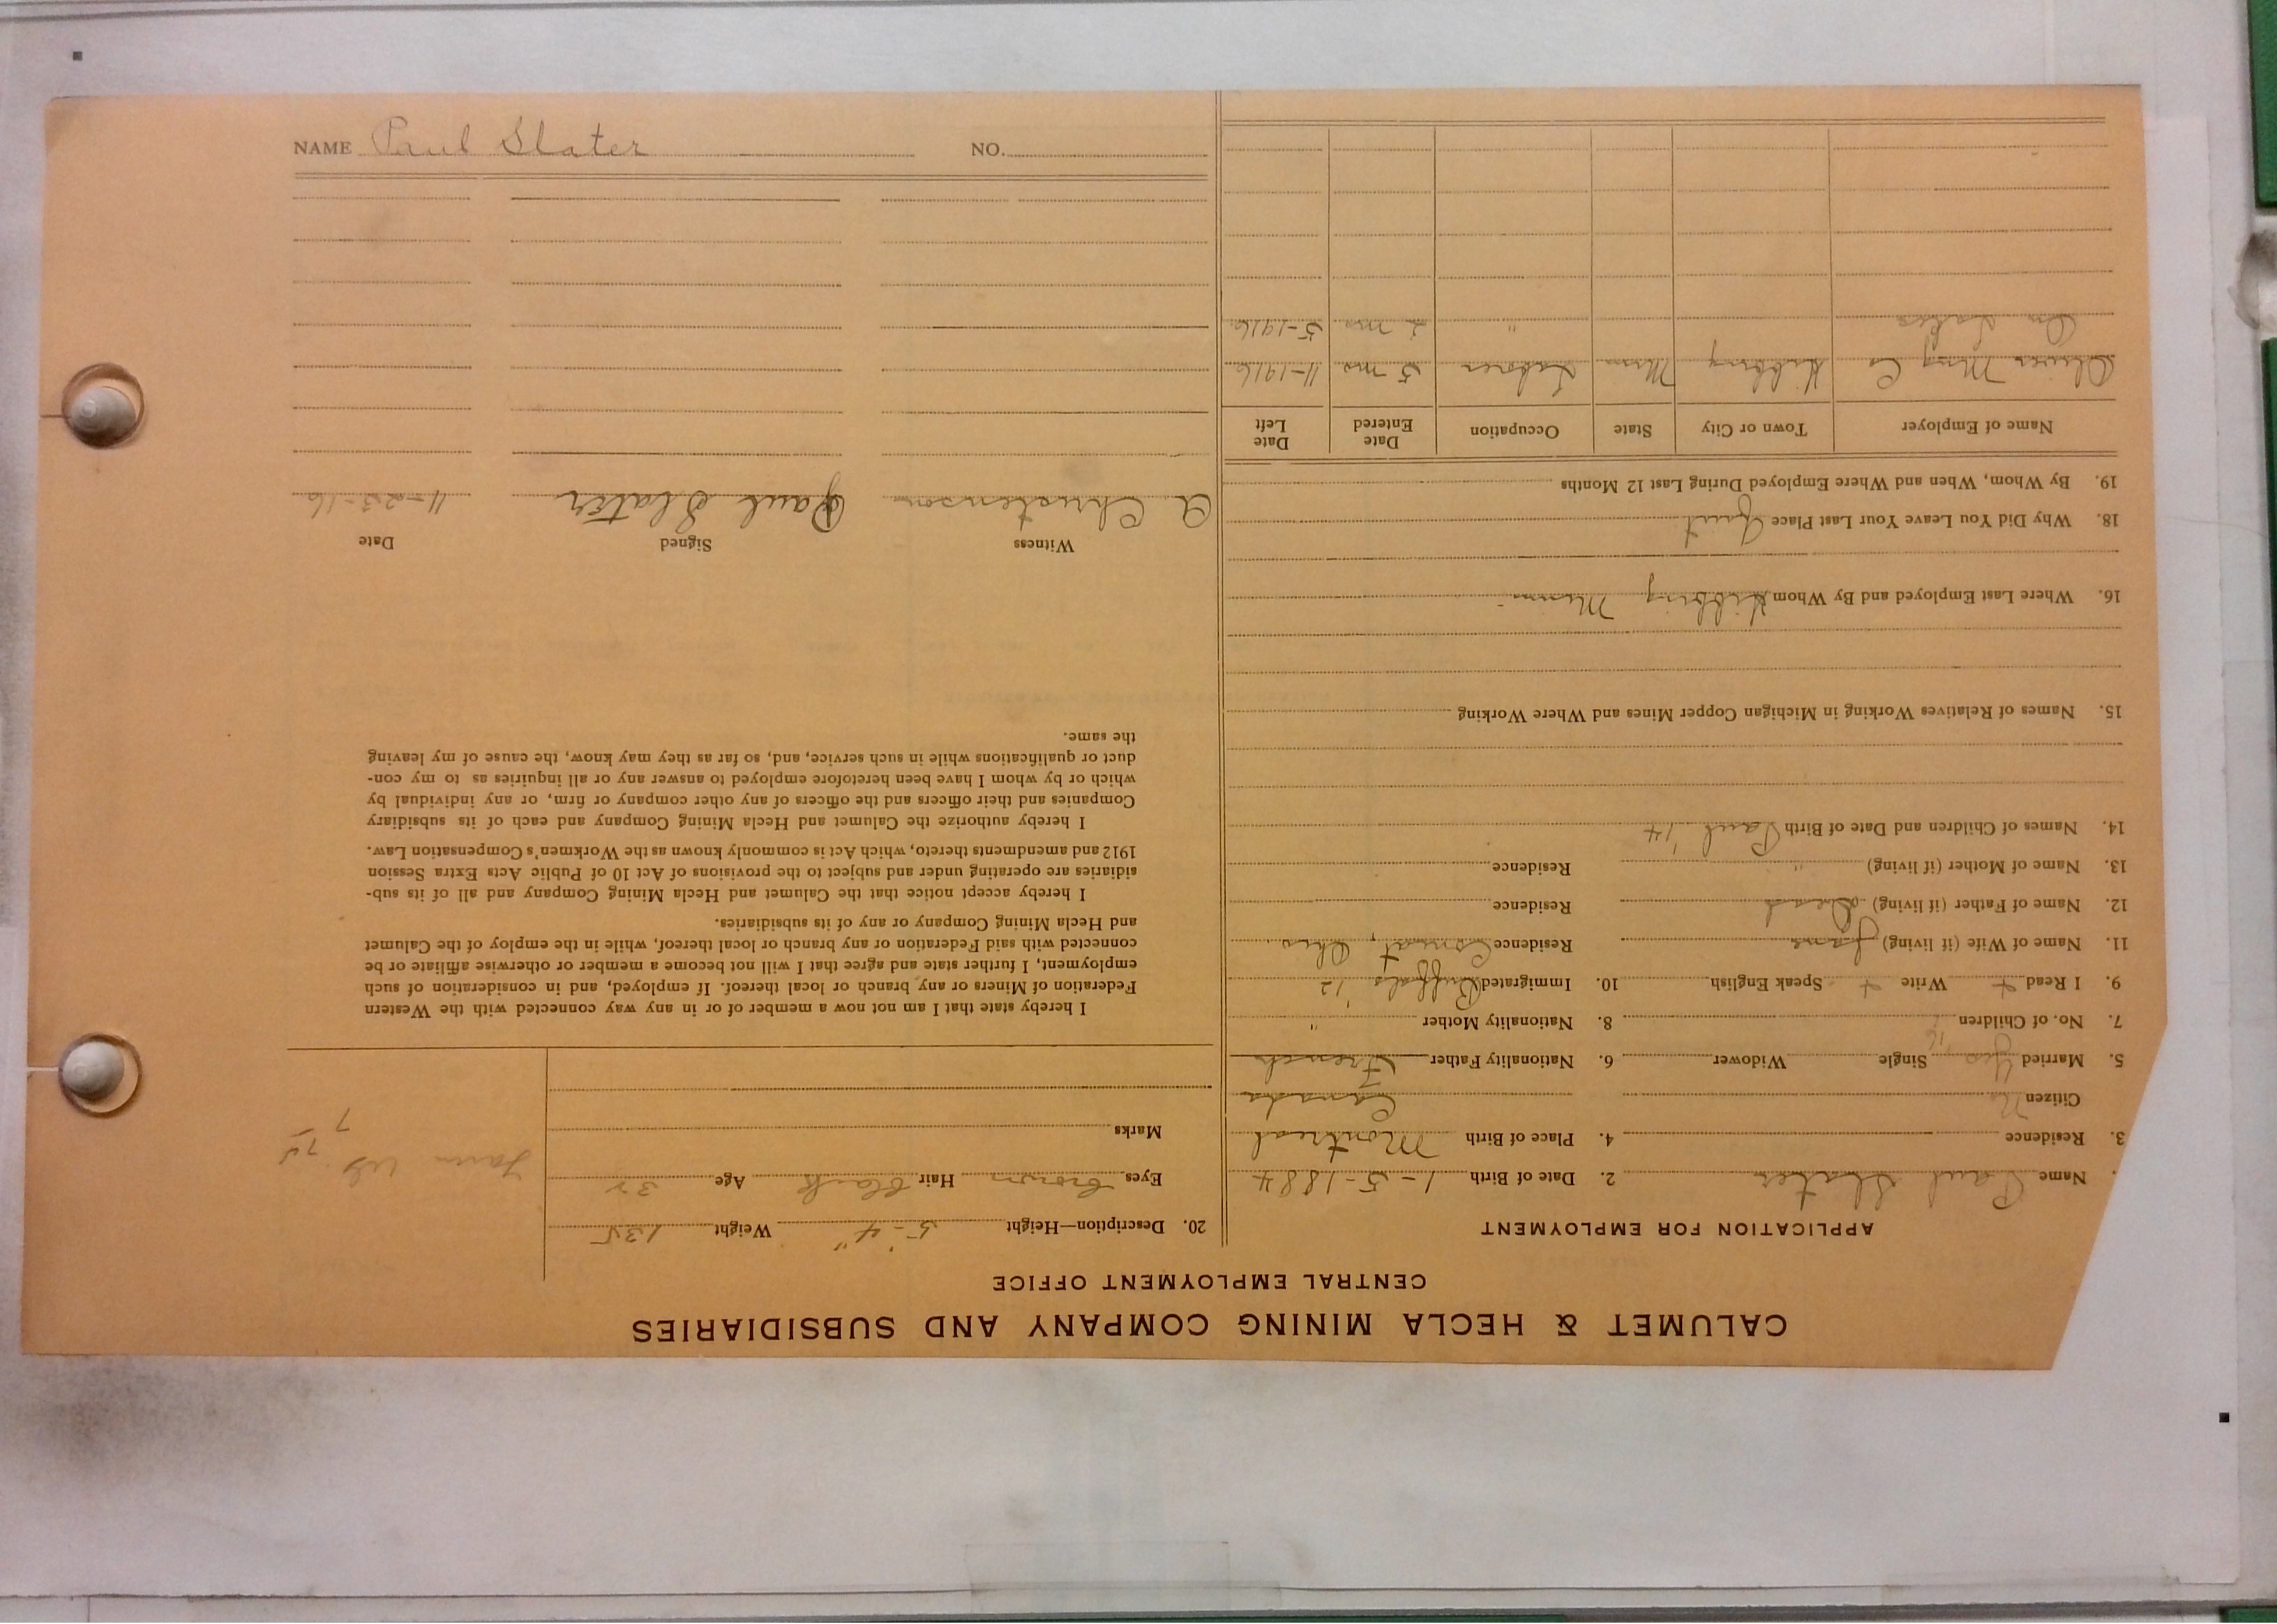 NAME Paul Slater NO.
CALUMET & HECLA MINING COMPANY AND SUBSIDIARIES
CENTRAL EMPLOYMENT OFFICE
APPLICATION FOR EMPLOYMENT
Name Paul Slater 2. Date of Birth 1-5-1884
3. Residence 4. Place of Birth Montreal
Citizen No Canada
5. Married Yes Single Widower 6. Nationality Father French
7. No. of Children 1 8. Nationality Mother "
9. I Read + Write + Speak English 10. Immigrated Buffalo '12
11. Name of Wife (if living) Jane Residence Ohio
12. Name of Father (if living) Dead Residence
13. Name of Mother (if living) " Residence
14. Names of Children and Date of Birth Paul '14
15. Names of Relatives Working in Michigan Copper Mines and Where Working
16. Where Last Employed and By Whom Hibbing Minn
18. Why Did You Leave Your Last Place Quit
19. By Whom, When and Where Employed During Last 12 Months
Name of Employer Town or City State Occupation Date Entered Date Left
Oliver Mng Co Hibbing Minn Laborer 5 mo 11-1916
On Lakes " 2 mo 5-1916
20. Description—Height 5'-4" Weight 135
Eyes brown Hair black Age 32
Marks
I hereby state that I am not now a member of or in any way connected with the Western
Federation of Miners or any branch or local thereof. If employed, and in consideration of such
employment, I further state and agree that I will not become a member or otherwise affiliate or be
connected with said Federation or any branch or local thereof, while in the employ of the Calumet
and Hecla Mining Company or any of its subsidiaries.
I hereby accept notice that the Calumet and Hecla Mining Company and all of its sub-
sidiaries are operating under and subject to the provisions of Act 10 of Public Acts Extra Session
1912 and amendments thereto, which Act is commonly known as the Workmen's Compensation Law.
I hereby authorize the Calumet and Hecla Mining Company and each of its subsidiary
Companies and their officers and the officers of any other company or firm, or any individual by
which or by whom I have been heretofore employed to answer any or all inquiries as to my con-
duct or qualifications while in such service, and, so far as they may know, the cause of my leaving
the same.
Witness Signed Date
A Christenson Paul Slater 11-23-16